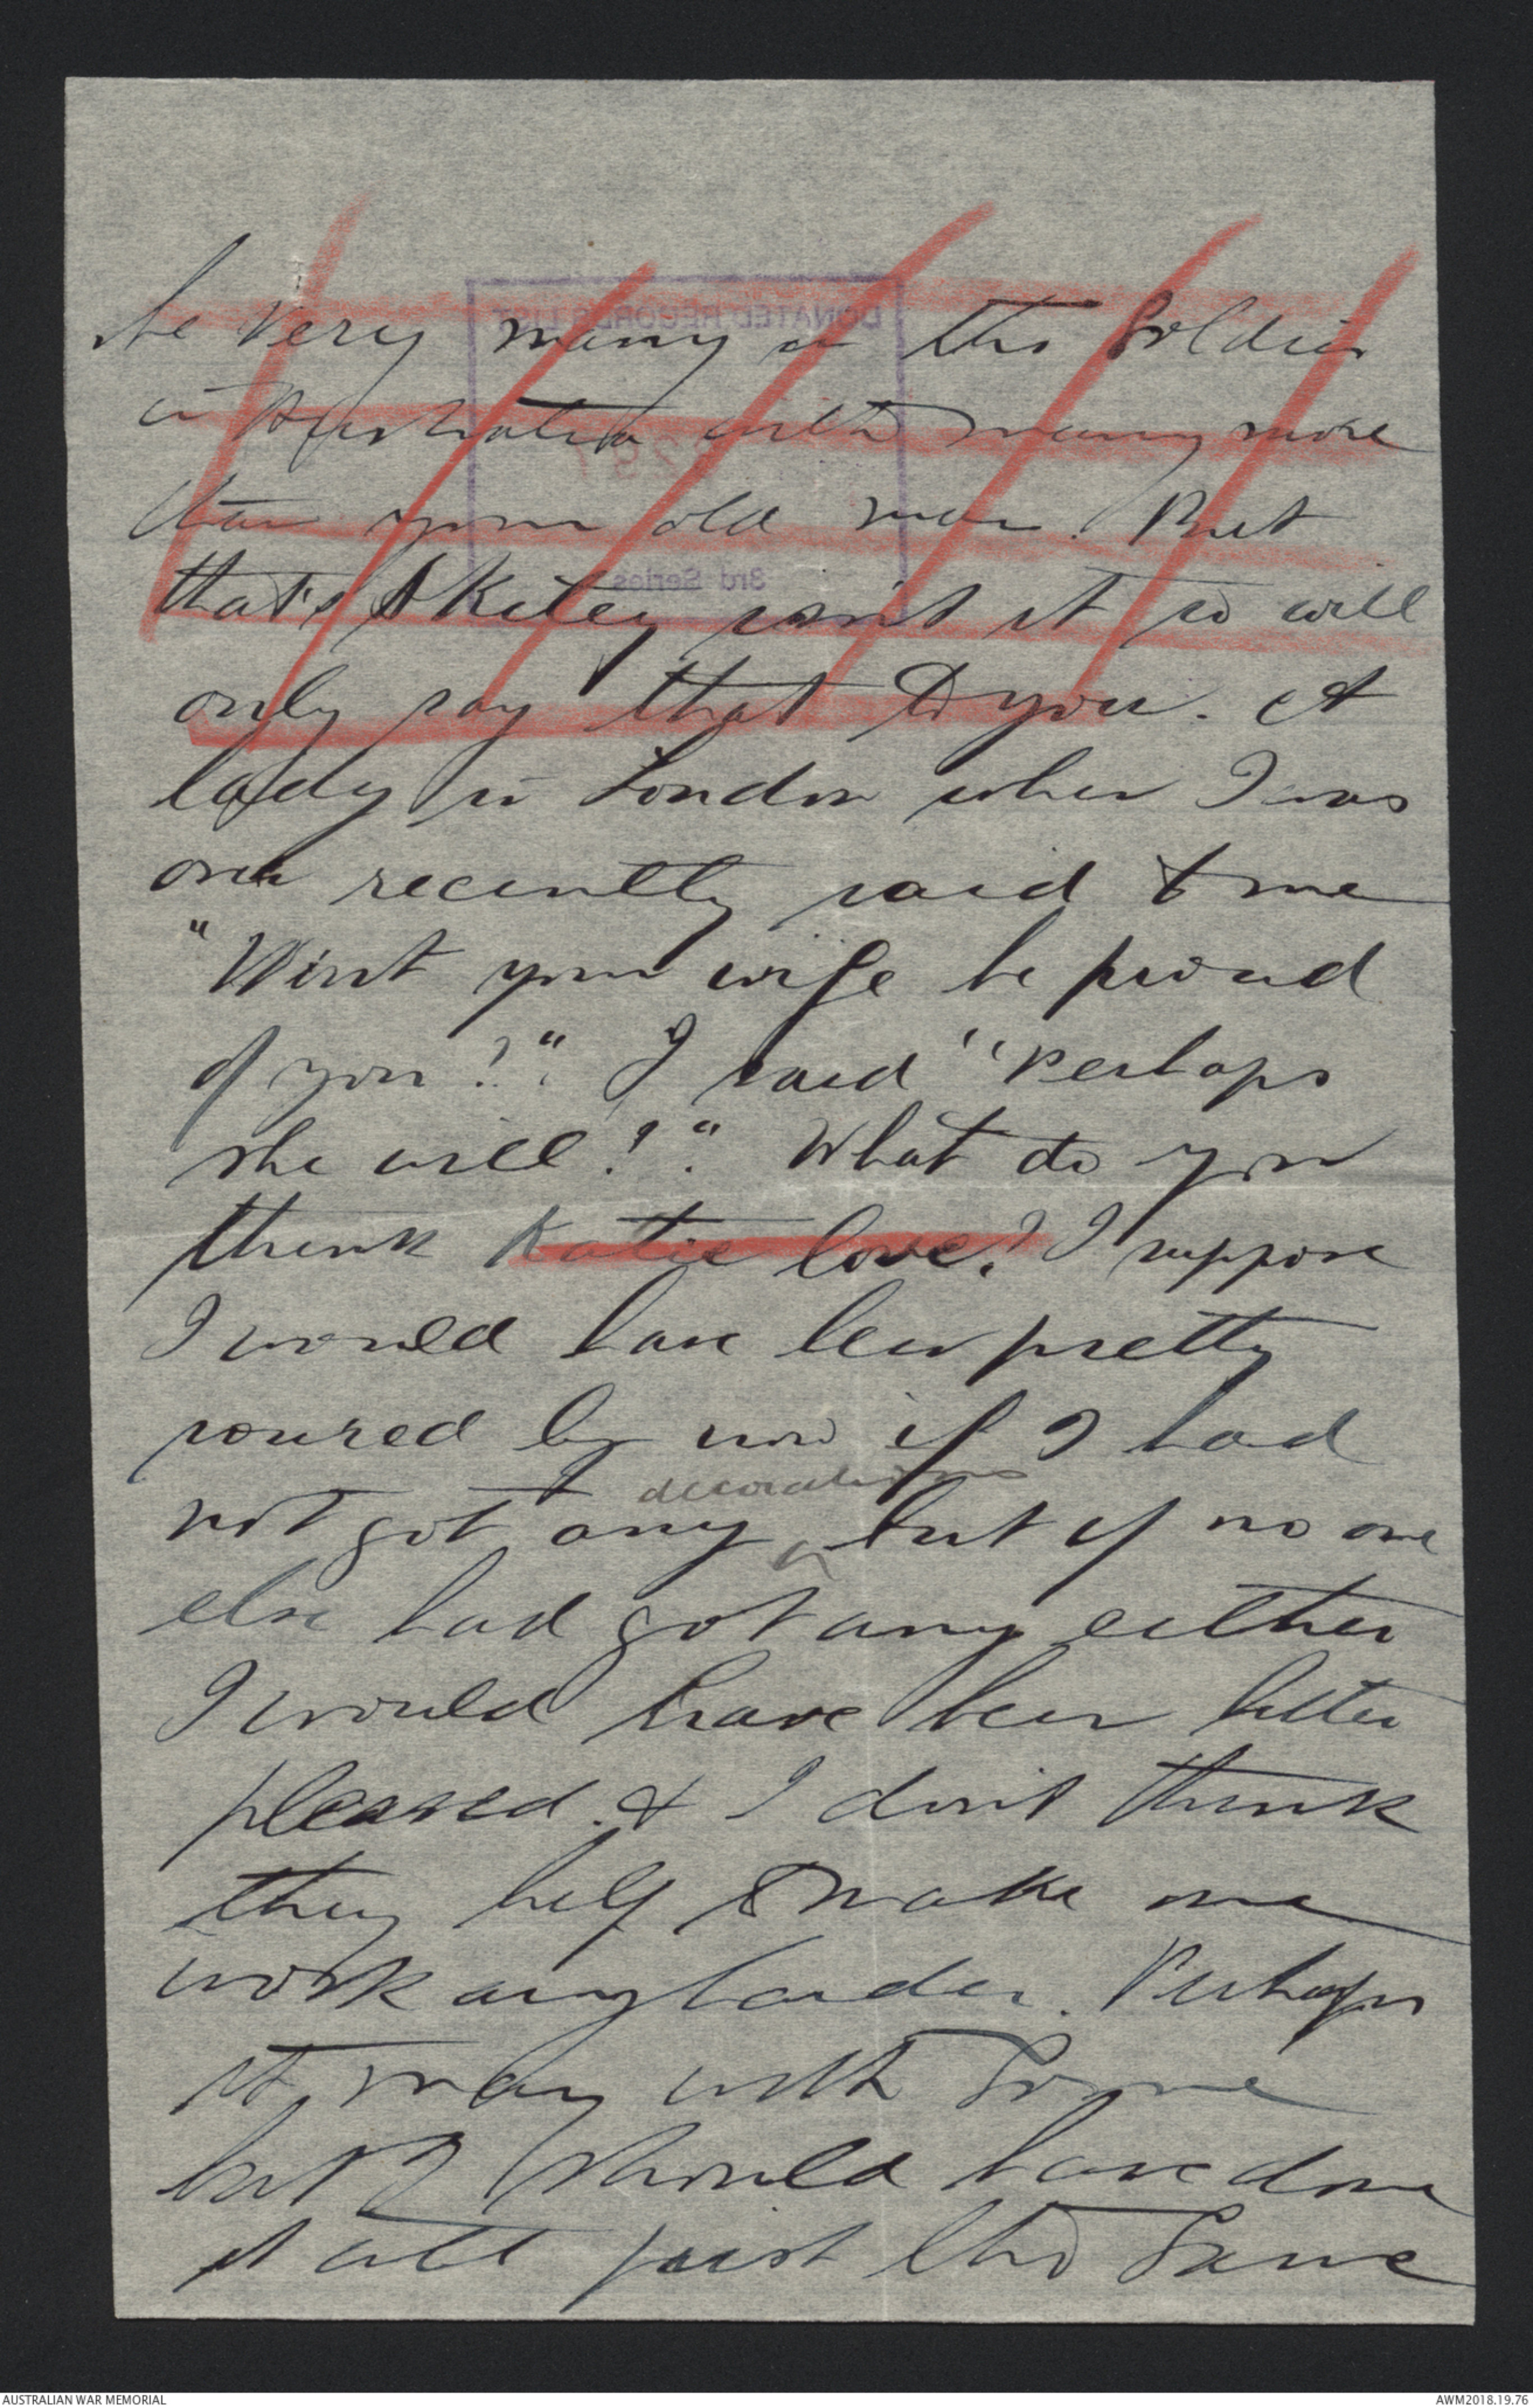 be very many or the soldier
in Australia with many more
than your old man. But
that's skitey isn't it so will
only say that to you. A
lady in London when I was
over recently said to me
"Wont your wife be proud
of you?". I said "Perhaps
she will!". What do you
think Katie love? I suppose
I would have been pretty
soured by now if I had
not got any decorations but if no one
else had got any either
I would have been better
pleased. & I don't think
they help to make me
work any harder. Perhaps
it may with some
but I should have done
it all just the same
DONATED RECORDS LIST
3rd Series
AUSTRALIAN WAR MEMORIAL
AWM2018.19.76